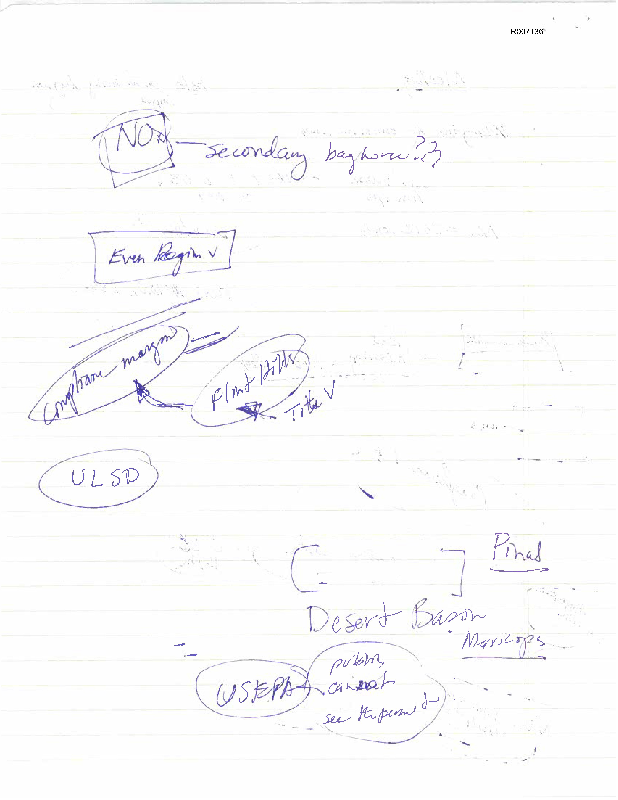 R007136
NOx — secondary baghouse??
Even Begin √
compliance margin
Flint Hills
Title V
ULSD
Pinal
Desert Basin
Maricopa
USEPA
cannot
see the permit